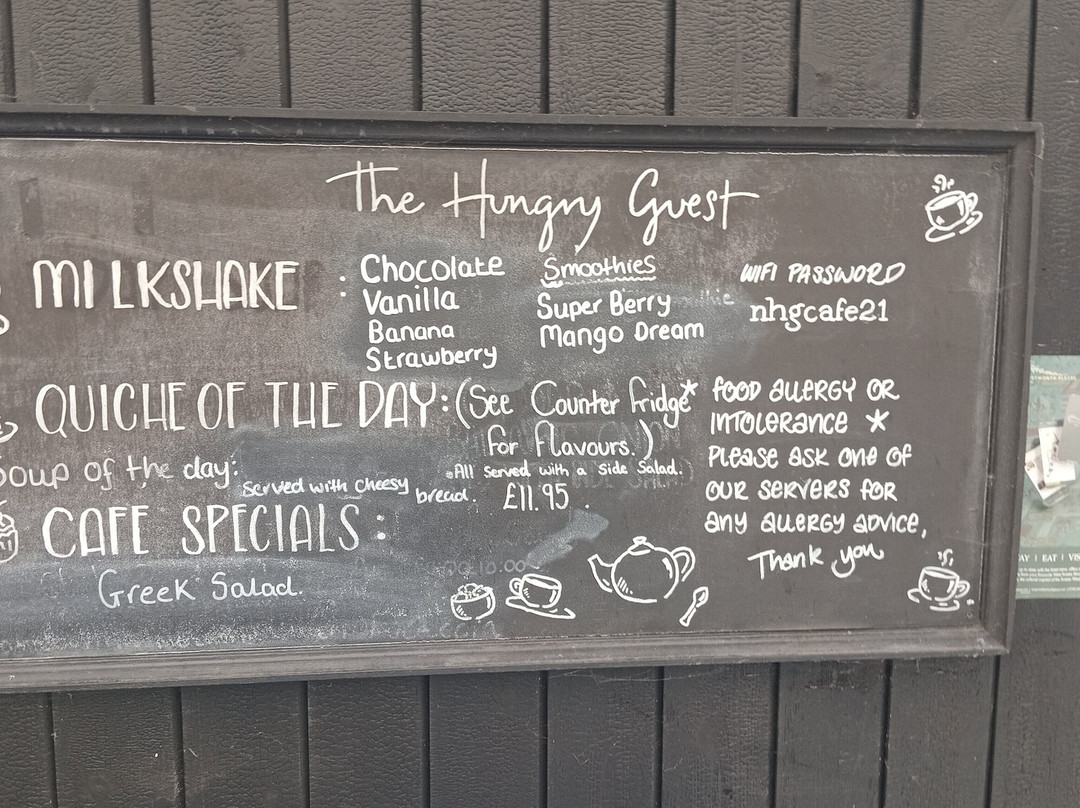 The Hungry Guest
MILKSHAKE : Chocolate
Vanilla
Banana
Strawberry
Smoothies
Super Berry
Mango Dream
WIFI PASSWORD
nhgcafe21
QUICHE OF THE DAY: (See Counter fridge*
for flavours.)
•All served with a side Salad.
£11.95.
Soup of the day:
served with cheesy bread.
CAFE SPECIALS:
Greek Salad.
FOOD ALLERGY OR
INTOLERANCE *
Please ask one of
our servers for
any allergy advice,
Thank you